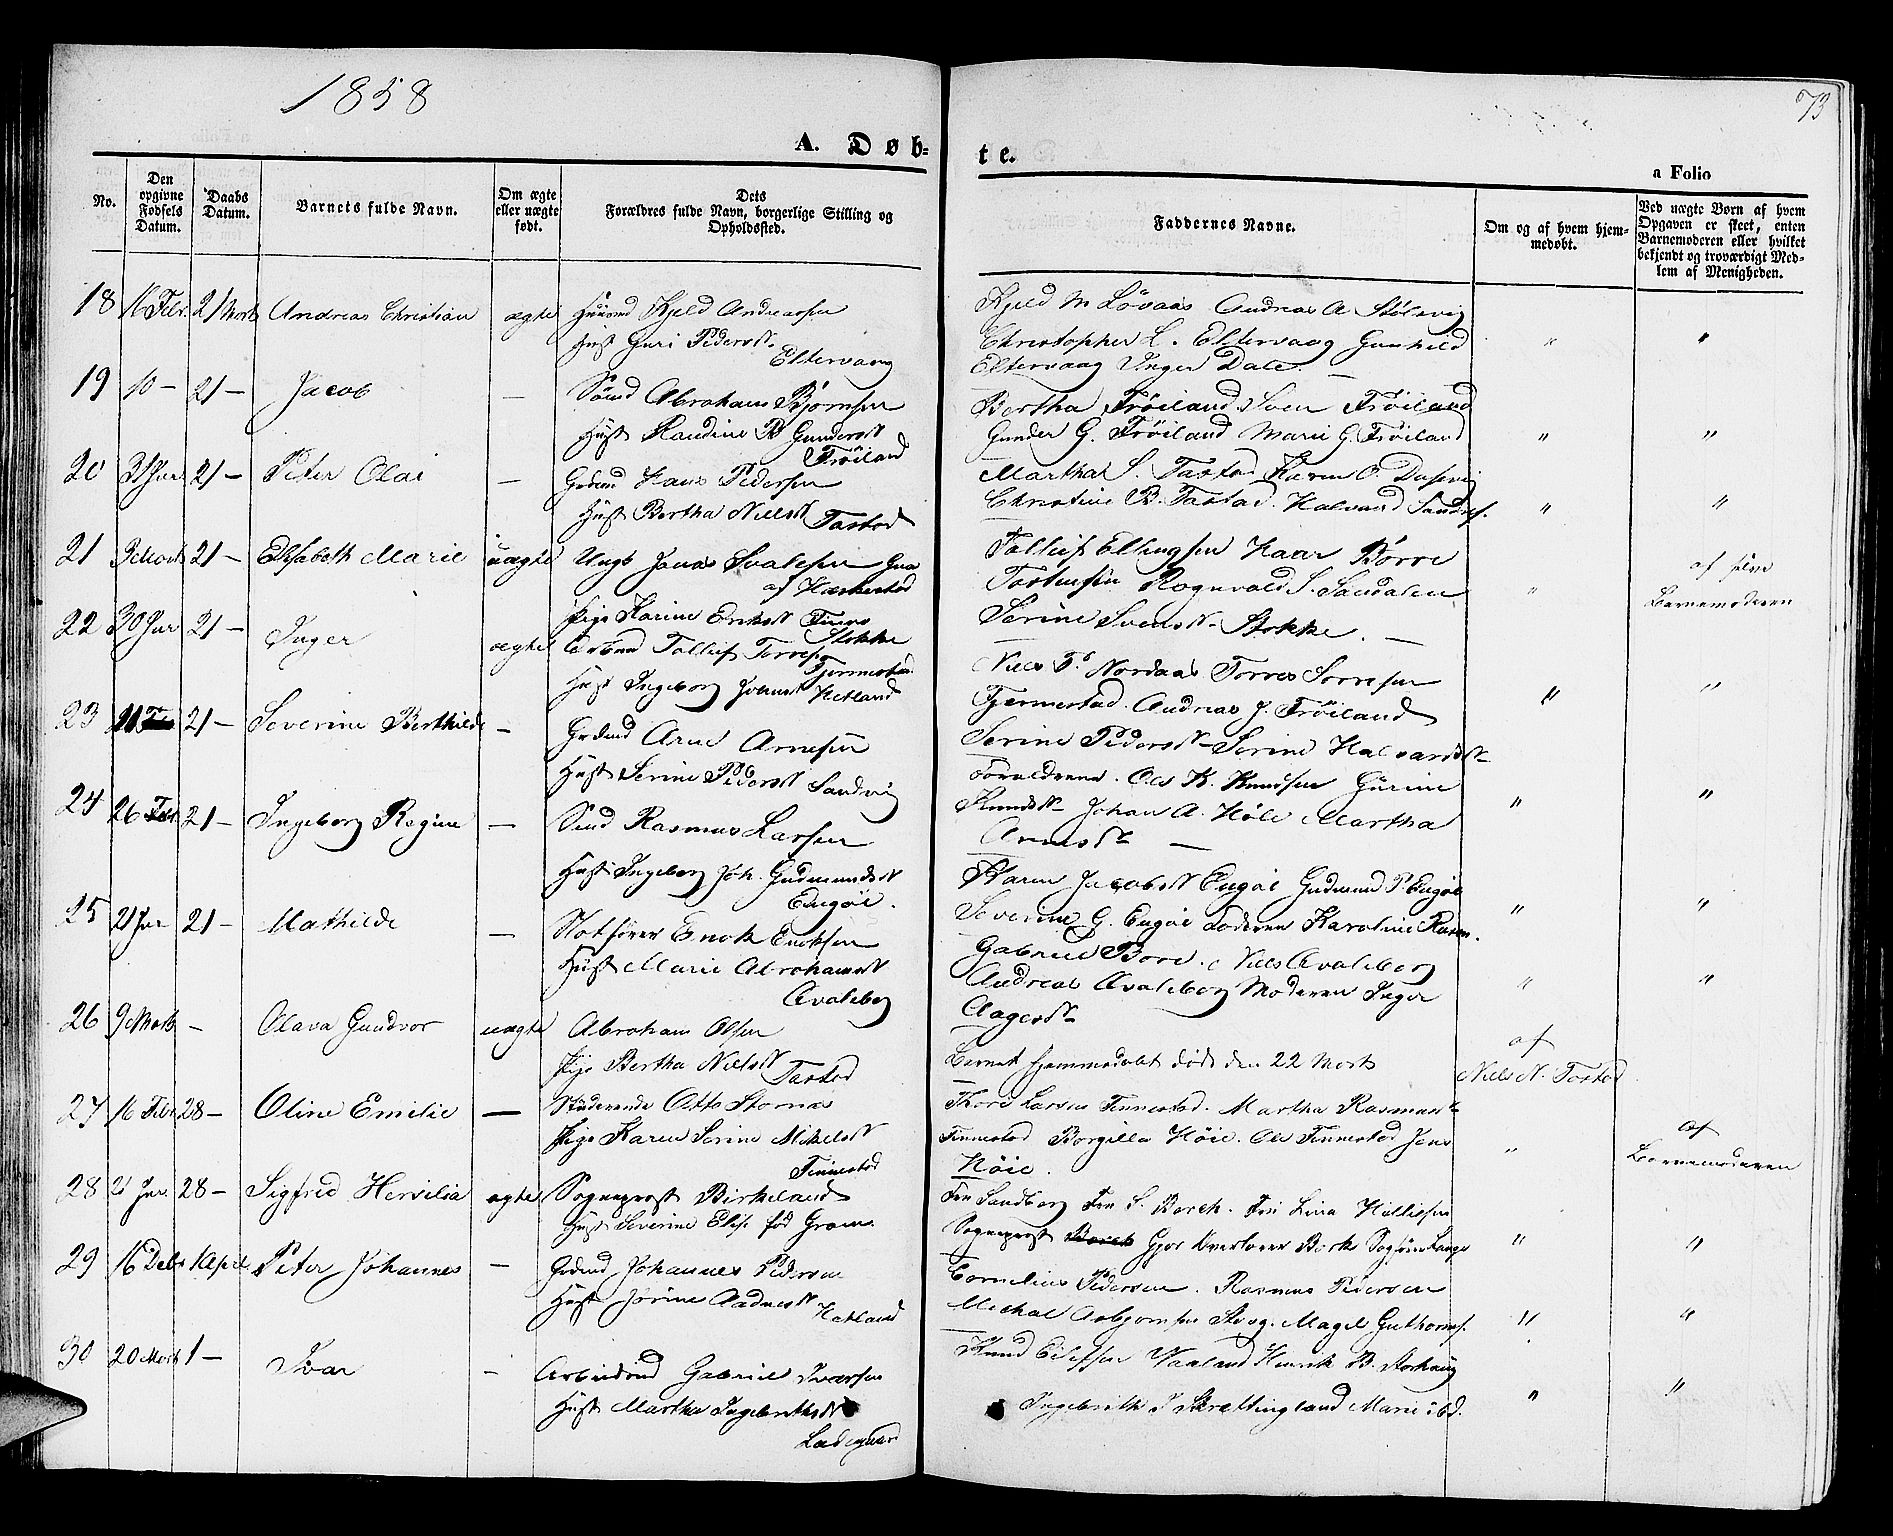 1858
73
A. Døb-
te.
a Folio
No.
Den opgivne Fødsels Datum.
Daabs Datum.
Barnets fulde Navn.
Om ægte eller uægte født.
Dets Forældres fulde Navn, borgerlige Stilling og Opholdssted.
Faddernes Navne.
Om og af hvem hjemmedøbt.
Ved uægte Børn af hvem Opgaven er skeet, enten Barnemoderen eller hvilket bekjendt og troværdigt Medlem af Menigheden.
18 16 Febr. 21 Marts Andreas Christian ægte Huusmd Kjeld Andreassen
Hust Guri Pedersdt
Eltervaag
Kjeld M Løvaas Andreas A Stølsvig
Christopher L. Eltervaag Gunhild
Eltervaag Inger Dale. —
" "
19 10 — 21 — Jacob — Sømd Abraham Bjørnsen
Hust Randine B Gundersdt
Frøiland
Bertha Frøiland Sven Frøiland
Gunder G. Frøiland Marie G. Frøiland
" "
20 31 Jan 21 — Peter Olai — Grdmd Hans Pedersen
Hust Bertha Nielsdt Tastad
Martha S. Tastad Karen O. Dusevig
Christine B. Tastad. Halvard Sandnes.
" "
21 9 Marts 21 — Elisabeth Marie uægte Ungk Jonas Svalesen
af Haskestad
Pige Karine Eriksdt
Stokke
Tollef Ellingsen Haar Børre
Tostensen Rognvald S. Sandalen
Serine Svensdt Stokke. —
" af selve
Barnemoderen
22 30 Jan 21 — Inger ægte Tollef Torresen
Tjermestad
Hust Ingeborg Johnsdt Hetland
Niels T. Nordaas Torres Torresen
Tjermestad. Andreas J. Frøiland
" "
23 21 — Severine Berthilde — Grdmd Arne Arnesen
Hust Serine Pedersdt Sandvig
Serine Pedersdt Serine Halvardsdt
Forældrene. Ole K. Knudsen Gurine
Knudsdt Johan A. Høle Martha
Arnesdt —
" "
24 26 Febr 21 — Ingeborg Regine — Smd Rasmus Larsen
Hust Ingeborg Joh. Gudmundsdt
Engøe.
Karen Jacobsdt Engøe Gudmund P. Engøe
Severine G. Engøe Faderen Karoline Rasm.
" "
25 21 Jan 21 — Mathilde — Slotfører Enok Enoksen
Hust Marie Abrahamsdt
Avaleberg
Gabriel Bore. Niels Avaleberg
Andreas Avaleberg Moderen Inger
Aagesdt
" "
26 9 Marts — Olava Gundvor uægte Abraham Olsen
Pige Bertha Nielsdt
Tastad
Barnet hjemmedøbt død den 22 Marts
af
Niels N. Tastad
27 16 Febr 28 — Oline Emilie — Studerende Otto Stornæs
Pige Karen Serine Mikelsdt
Finnestad
Thore Larsen Finnestad. Martha Rasmusdt
Finnestad Borgilla Høie. Ole Finnestad Jens
Høie.
" Af
Barnemoderen
28 21 Jan. 28 — Sigfred Hersilia ægte Sogneprest Birkeland
Hust Severine Elise fød Gram.
Fru Sandberg Fru S. Borch. Frk Lina Hellisen
Sogneprest Borch Gjør Overlærer Birch Sogfører Lange
" "
29 16 Debr 1 April Peter Johannes — Grdmd Johannes Pedersen
Hust Jorine Aadnesdt
Hatland
Cornelius Pedersen. Rasmus Pedersen
Michal Asbjørnsen Skog. Magel Guthorms.
" "
30 20 Marts 1 — Ivar — Arbeidsmd Gabriel Ivarsen
Hust Martha Ingebrethsdt
Ladegaard
Knud Eilefsen Vaaland Henrik B. Storhaug
Ingebreth I Skrettingland Marie ibd.
" "